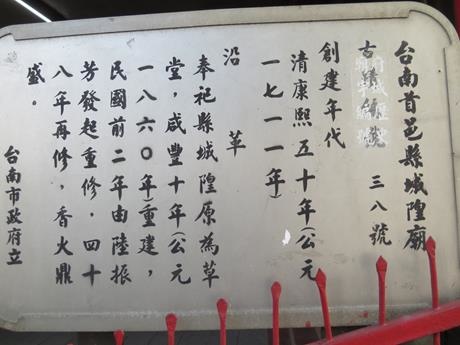 台南首邑縣城隍廟
古蹟編號 三八號
創建年代
清康熙五十年(公元
一七一一年)
沿革
奉祀縣城隍原為草
堂,咸豐十年(公元
一八六○年)重建,
民國前二年由陸振
芳發起重修.四十
八年再修,香火鼎
盛。
台南市政府立